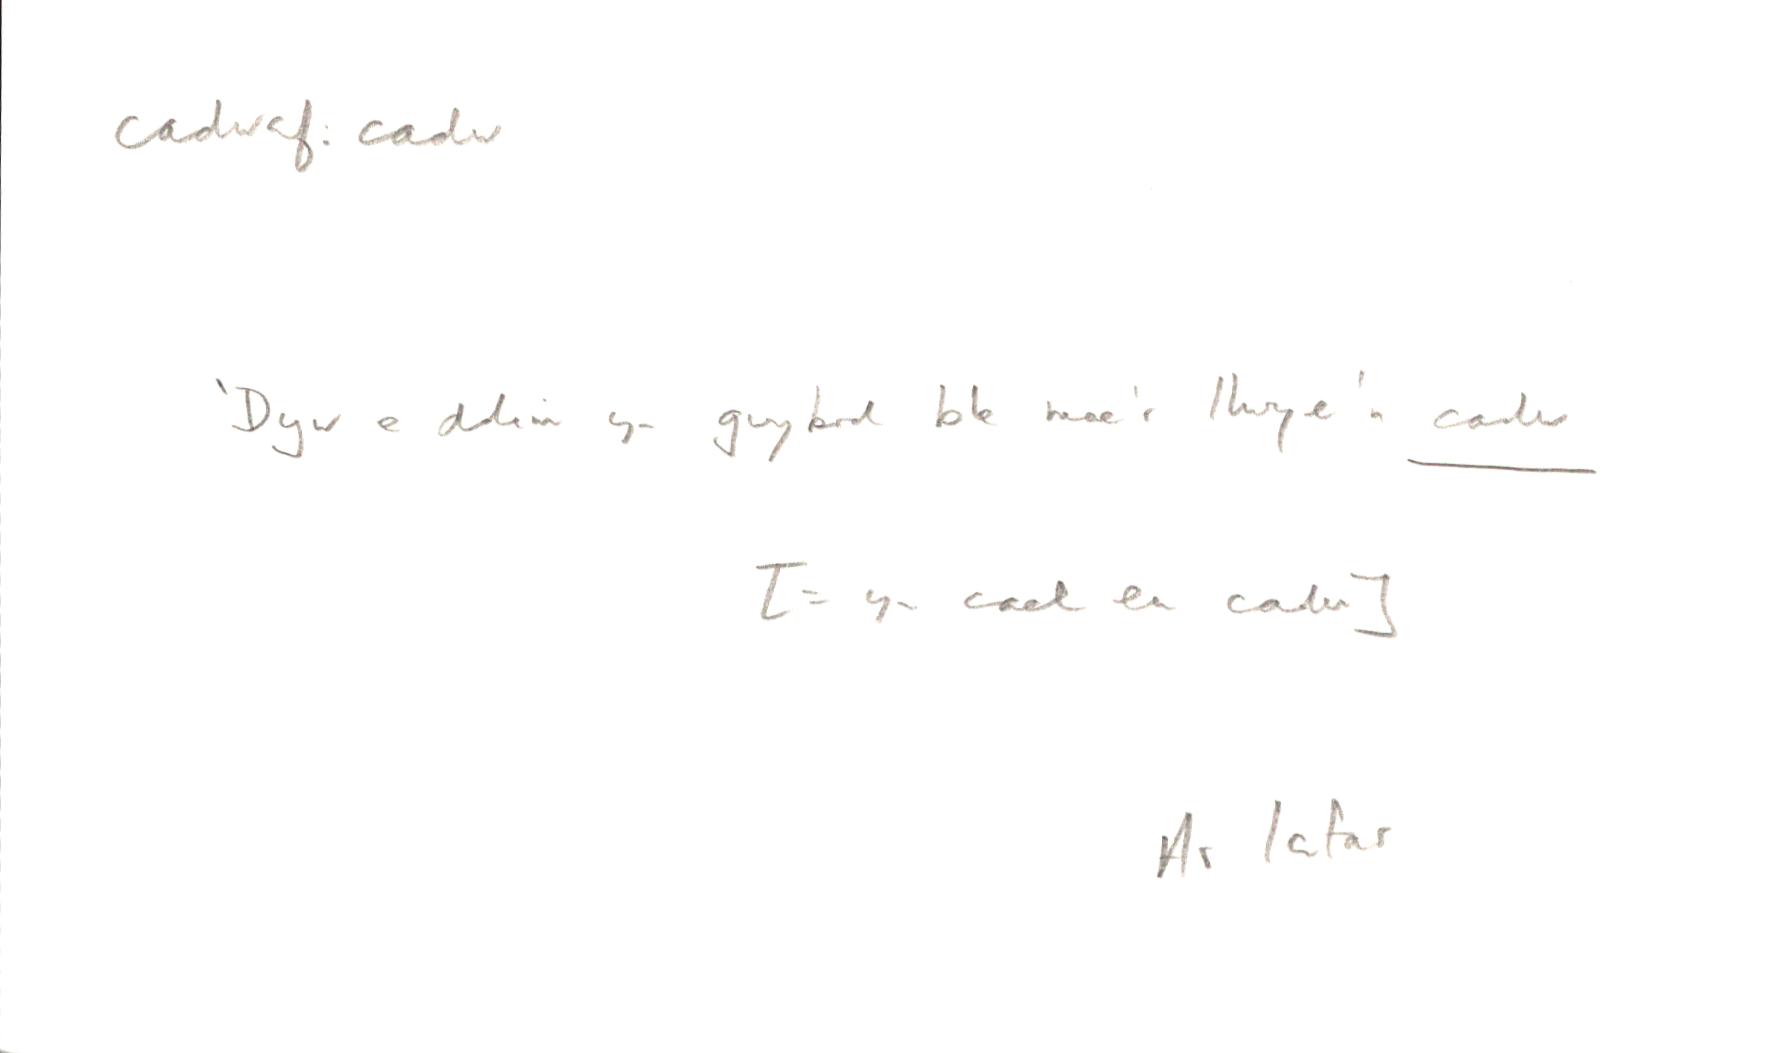 cadwaf: cadw
'Dyw e ddim yn gwybod ble mae'r llwye'n cadw
[= yn cael eu cadw]
Ar lafar